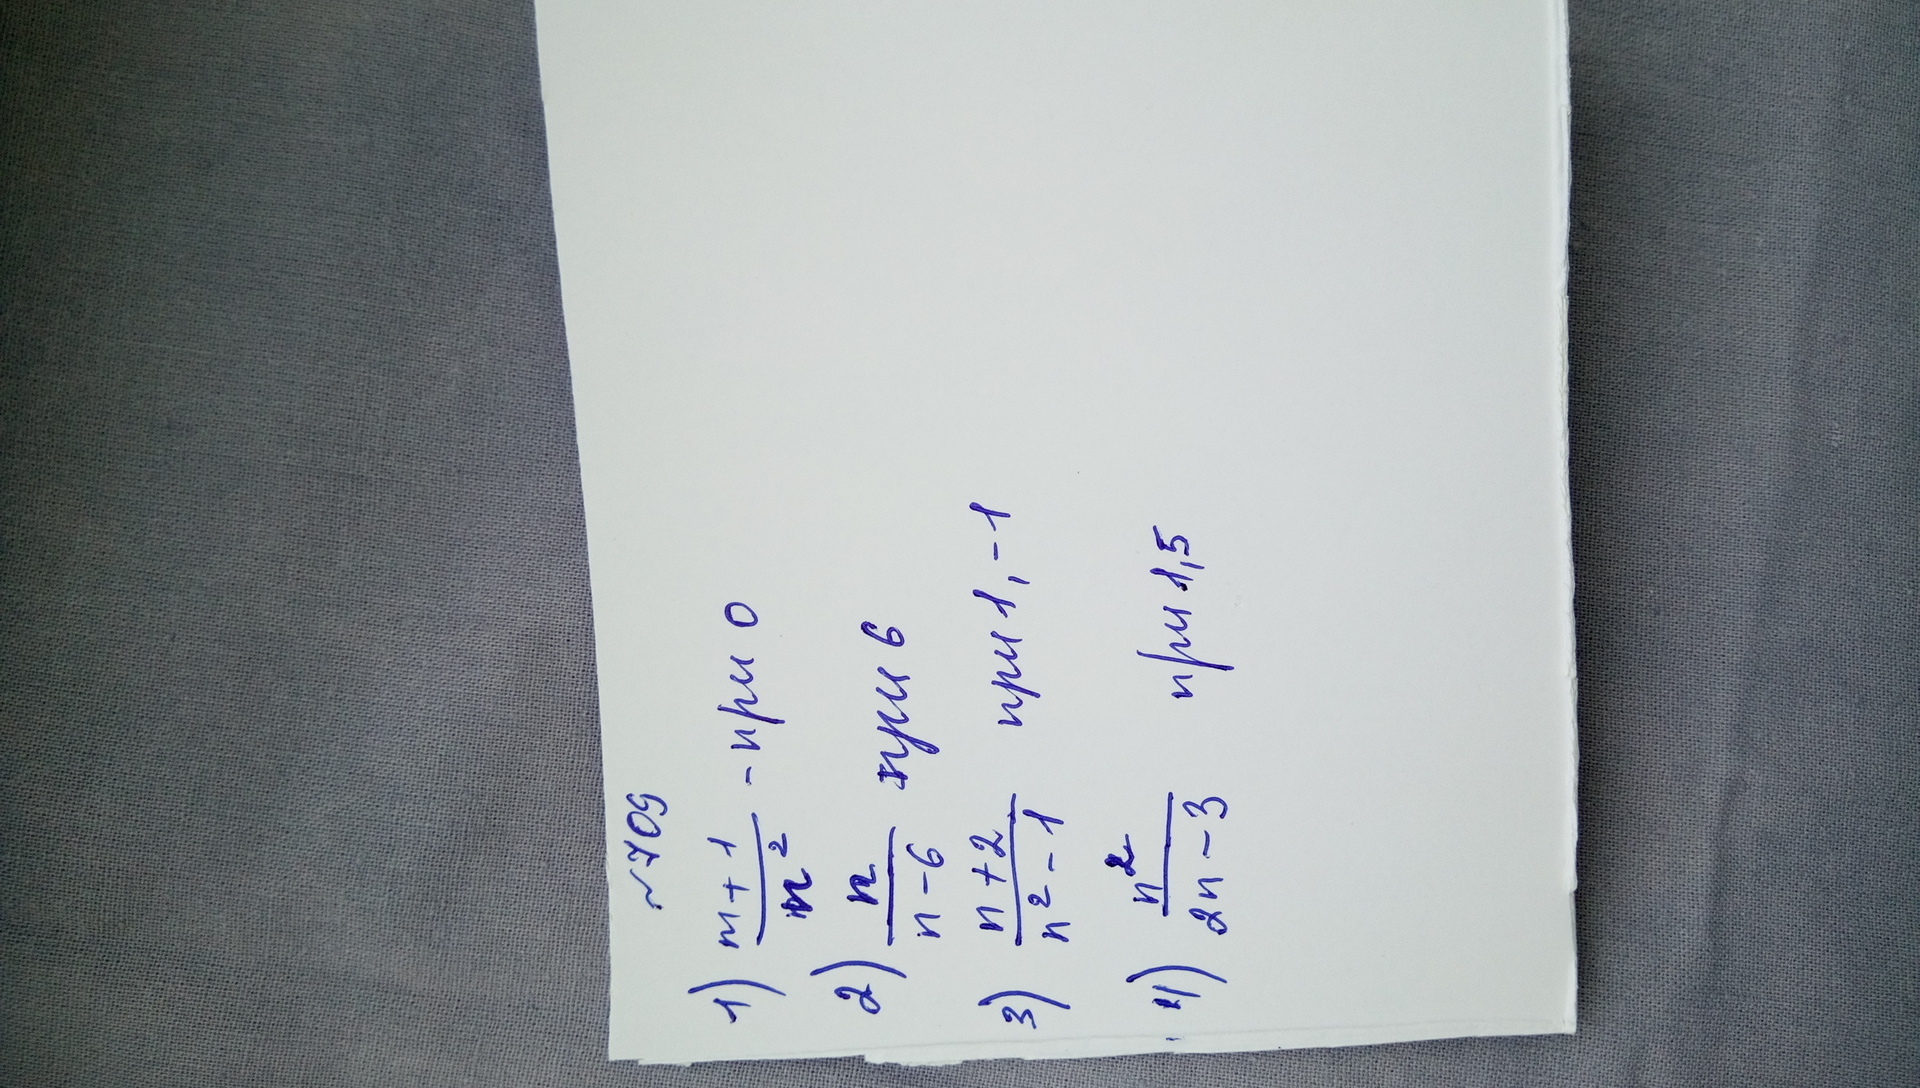 ~709
1) m+1/n² - при 0
2) n/n-6 при 6
3) n+2/n²-1 при 1, -1
4) n²/2n-3 при 1,5